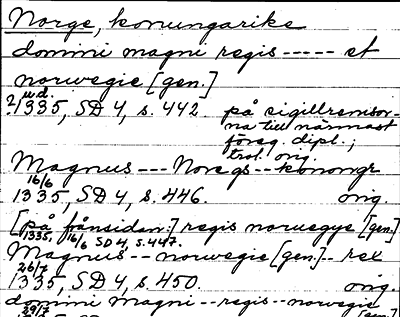 Norge, konungarike
domini magni regis ----- et
norwegie [gen.]
u.d.
? 1335, SD 4, s. 442 på sigillremsor-
na till närmast
föreg. dipl.;
trol. orig.
Magnus --- Noregs -- konongr
16/6
1335, SD 4, s. 446. orig.
[på frånsidan:] regis norwegye [gen.]
1335, 16/6 SD 4, s. 447.
Magnus -- norwegie [gen.] -- rex
26/7
1335, SD 4, s. 450. orig.
domini magni -- regis -- norwegie
29/7 [gen.]